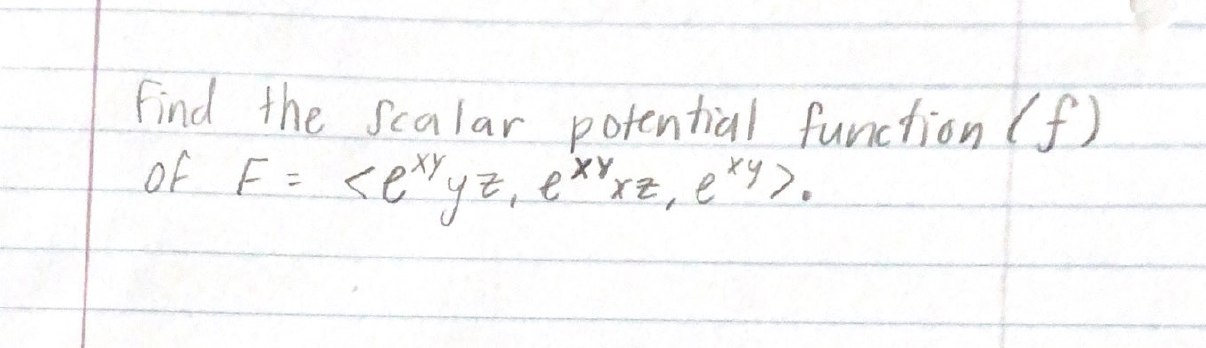 Find the scalar potential function (f)
of F = <e^xy yz, e^xy xz, e^xy>.